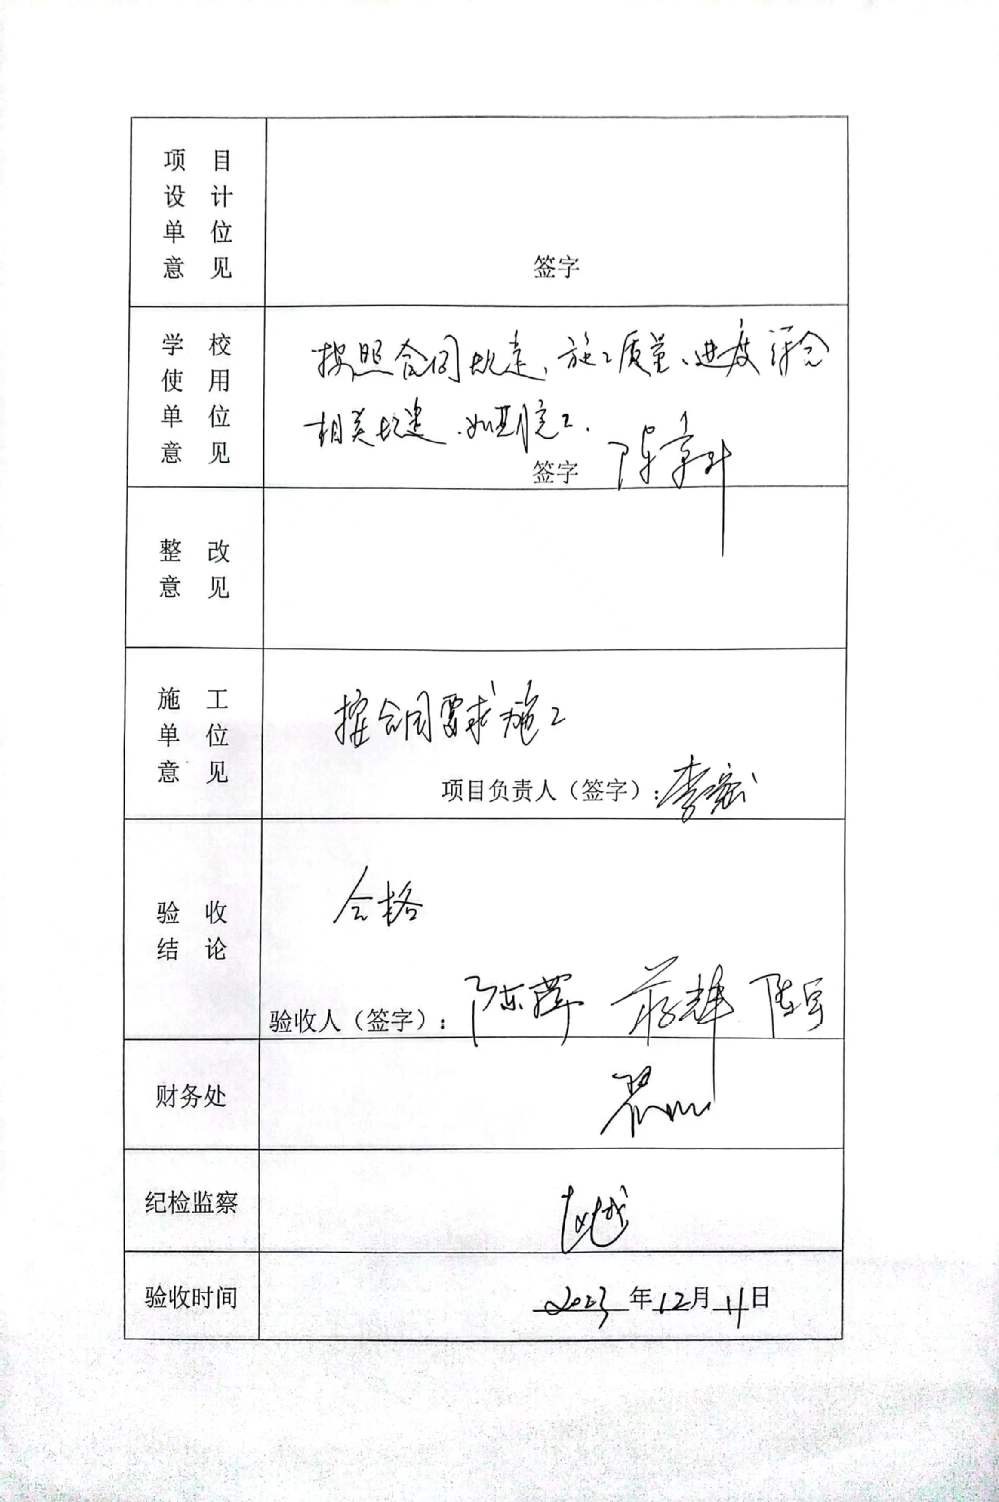 项 目
设 计
单 位
意 见
签字
学 校
使 用
单 位
意 见
按照合同规定、施工质量、进度符合
相关规定、如期完工.
签字 陈章
整 改
意 见
施 工
单 位
意 见
按合同要求施工
项目负责人（签字）：李宏
验 收
结 论
合格
验收人（签字）：陈 辉 陈宇
财务处
纪检监察
验收时间
2023年12月11日